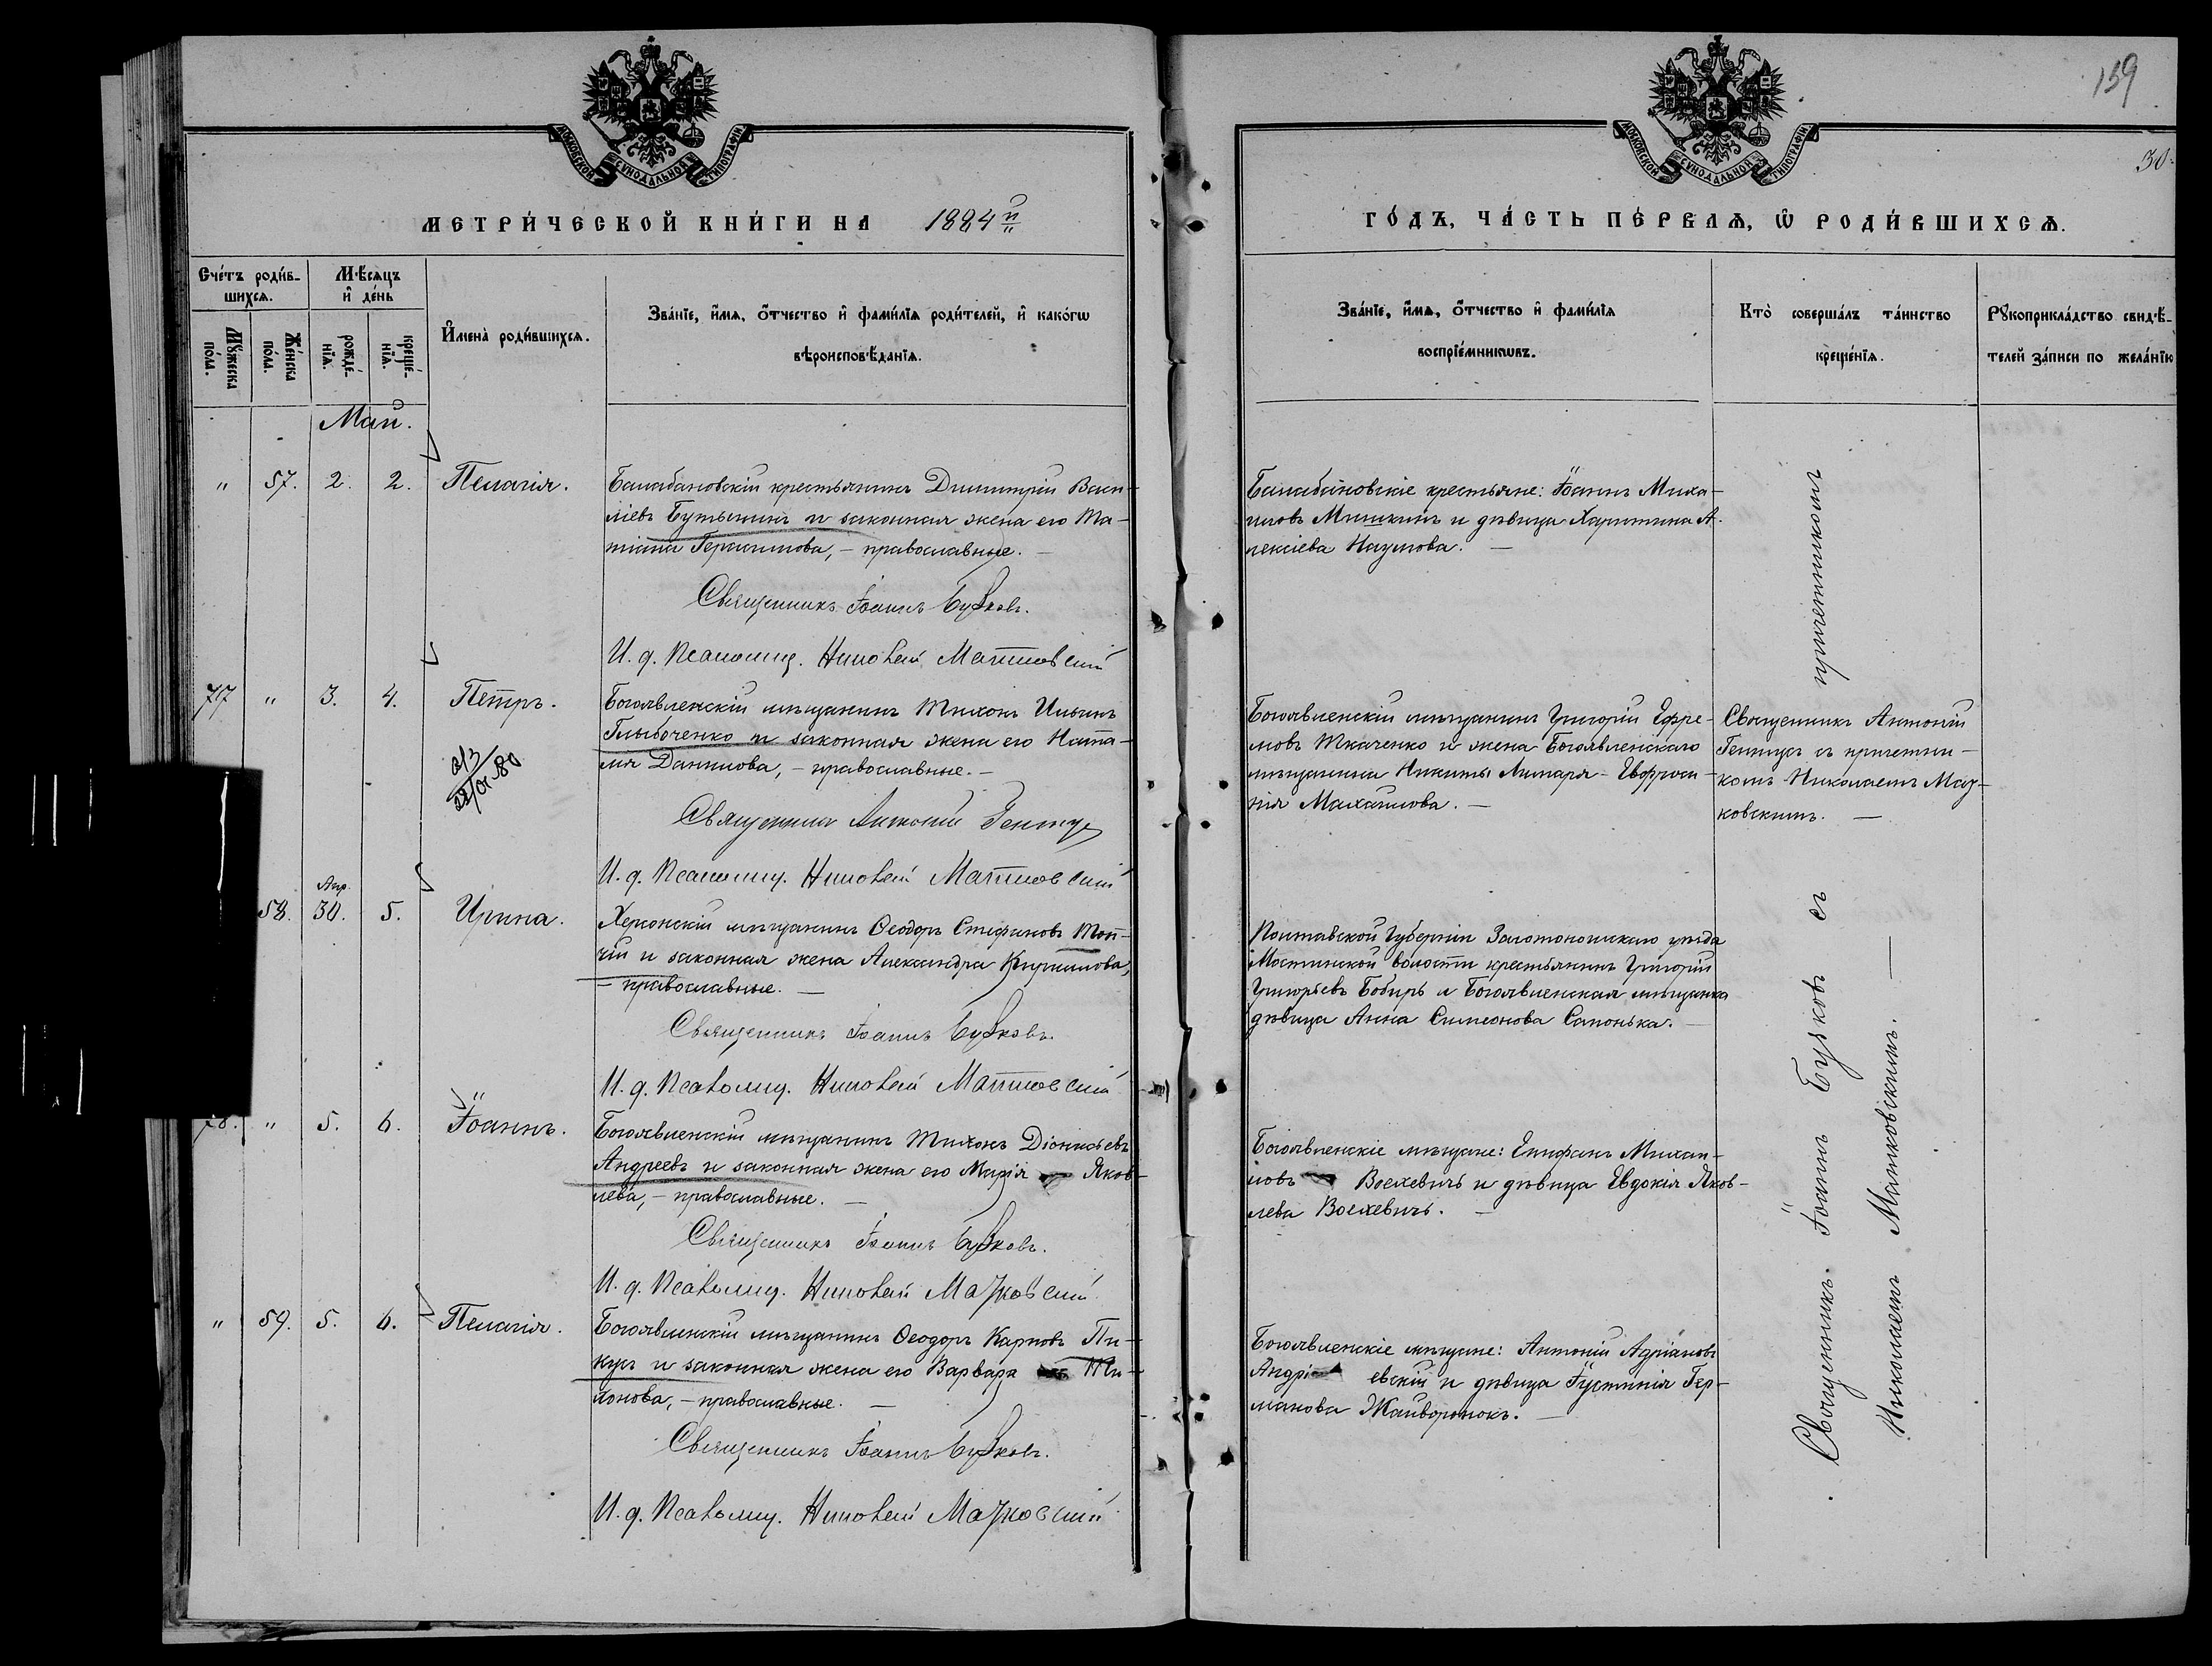 159
30.
МОСКОВСКОЙ СѴНОДАЛЬНОЙ ТИПОГРАФІИ
МОСКОВСКОЙ СѴНОДАЛЬНОЙ ТИПОГРАФІИ
МЕТРИ́ЧЕСКОЙ КНИ́ГИ НА 1884й
ГО́ДЪ, ЧА́СТЬ ПЕ́РВАѦ, Ѡ҆ РОДИ́ВШИХСѦ.
Сче́тъ роди́в-
шихсѧ.
Мꙋ́жеска по́ла.
Же́нска по́ла.
Мѣ́сѧцъ
и҆ де́нь
рожде́-
нїѧ.
креще́-
нїѧ.
И҆мена̀ роди́вшихсѧ.
Зва́нїе, и҆́мѧ, ѻ҆́тчество и҆ фами́лїѧ роди́телей, и҆ како́гѡ
вѣроисповѣ́данїѧ.
Зва́нїе, и҆́мѧ, ѻ҆́тчество и҆ фами́лїѧ
воспрїе́мникѡвъ.
Кто̀ соверша́лъ та́инство
креще́нїѧ.
Рꙋкоприкла́дство свидѣ́-
телей за́писи по жела́нїю
Май.
" 57. 2. 2. Пелагія.
Балабановскій крестьянинъ Димитрій Васи-
ліевъ Бутынинъ и законная жена его Та-
тіана Герасимова, – православные. –
Священникъ Іоаннъ Бузковъ.
И. д. Псаломщ. Николай Матковскій
Балабановскіе крестьяне: Іоаннъ Миха-
иловъ Мишкинъ и дѣвица Харитина А-
лексіева Наумова. –
77 " 3. 4. Петръ.
Богоявленскій мѣщанинъ Тихонъ Ильинъ
Глыбоченко и законная жена его Ната-
лія Данилова, – православные. –
Священникъ Антоній Гентус
И. д. Псаломщ. Николай Матковскій
Богоявленскій мѣщанинъ Григорій Ефре-
мовъ Ткаченко и жена Богоявленскаго
мѣщанина Никиты Лимаря – Евфроси-
нія Михаилова. –
Священникъ Антоній
Гентусъ съ причетни-
комъ Николаемъ Мат-
ковскимъ. –
58. Апр. 30. 5. Ирина.
Херсонскій мѣщанинъ Ѳеодоръ Стефановъ Топ-
чій и законная жена Александра Кириллова,
– православные. –
Священникъ Іоаннъ Бузковъ.
И. д. Псаломщ. Николай Матковскій
Полтавской Губерніи Золотоношскаго уѣзда
крестьянинъ Григорій
Григорьевъ Бобирь и Богоявленская мѣщанка
дѣвица Анна Симеонова Сапонька. –
78. " 5. 6. Іоаннъ.
Богоявленскій мѣщанинъ Тихонъ Діонисьевъ
Андреевъ и законная жена его Марія Яков-
лева, – православные. –
Священникъ Іоаннъ Бузковъ.
И. д. Псаломщ. Николай Матковскій
Богоявленскіе мѣщане: Епифанъ Михаи-
ловъ Воехевичъ и дѣвица Евдокія Яков-
лева Воехевичъ. –
" 59. 5. 6. Пелагія.
Богоявленскій мѣщанинъ Ѳеодоръ Карповъ Пи-
кусъ и законная жена его Варвара
– православные. –
Священникъ Іоаннъ Бузковъ.
И. д. Псаломщ. Николай Матковскій
Богоявленскіе мѣщане: Антоній Адріановъ
Андріевскій и дѣвица Іустинія Гер-
манова Жайворонокъ. –
Священникъ Іоаннъ Бузковъ съ причетникомъ
Николаемъ Матковскимъ. –